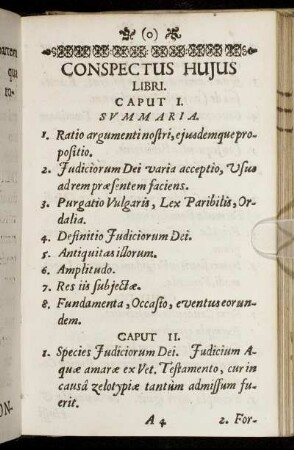 (o)
CONSPECTUS HUJUS
LIBRI.
CAPUT I.
SVMMARIA.
1. Ratio argumenti nostri, ejusdemque pro-
positio.
2. Judiciorum Dei varia acceptio, Usus
ad rem præsentem faciens.
3. Purgatio Vulgaris, Lex Paribilis, Or-
dalia.
4. Definitio Judiciorum Dei.
5. Antiquitas illorum.
6. Amplitudo.
7. Res iis subjectæ.
8. Fundamenta, Occasio, eventus eorun-
dem.
CAPUT II.
1. Species Judiciorum Dei. Judicium A-
quæ amaræ ex Vet. Testamento, cur in
causâ zelotypiæ tantùm admissum fu-
erit.
A 4 2. For-